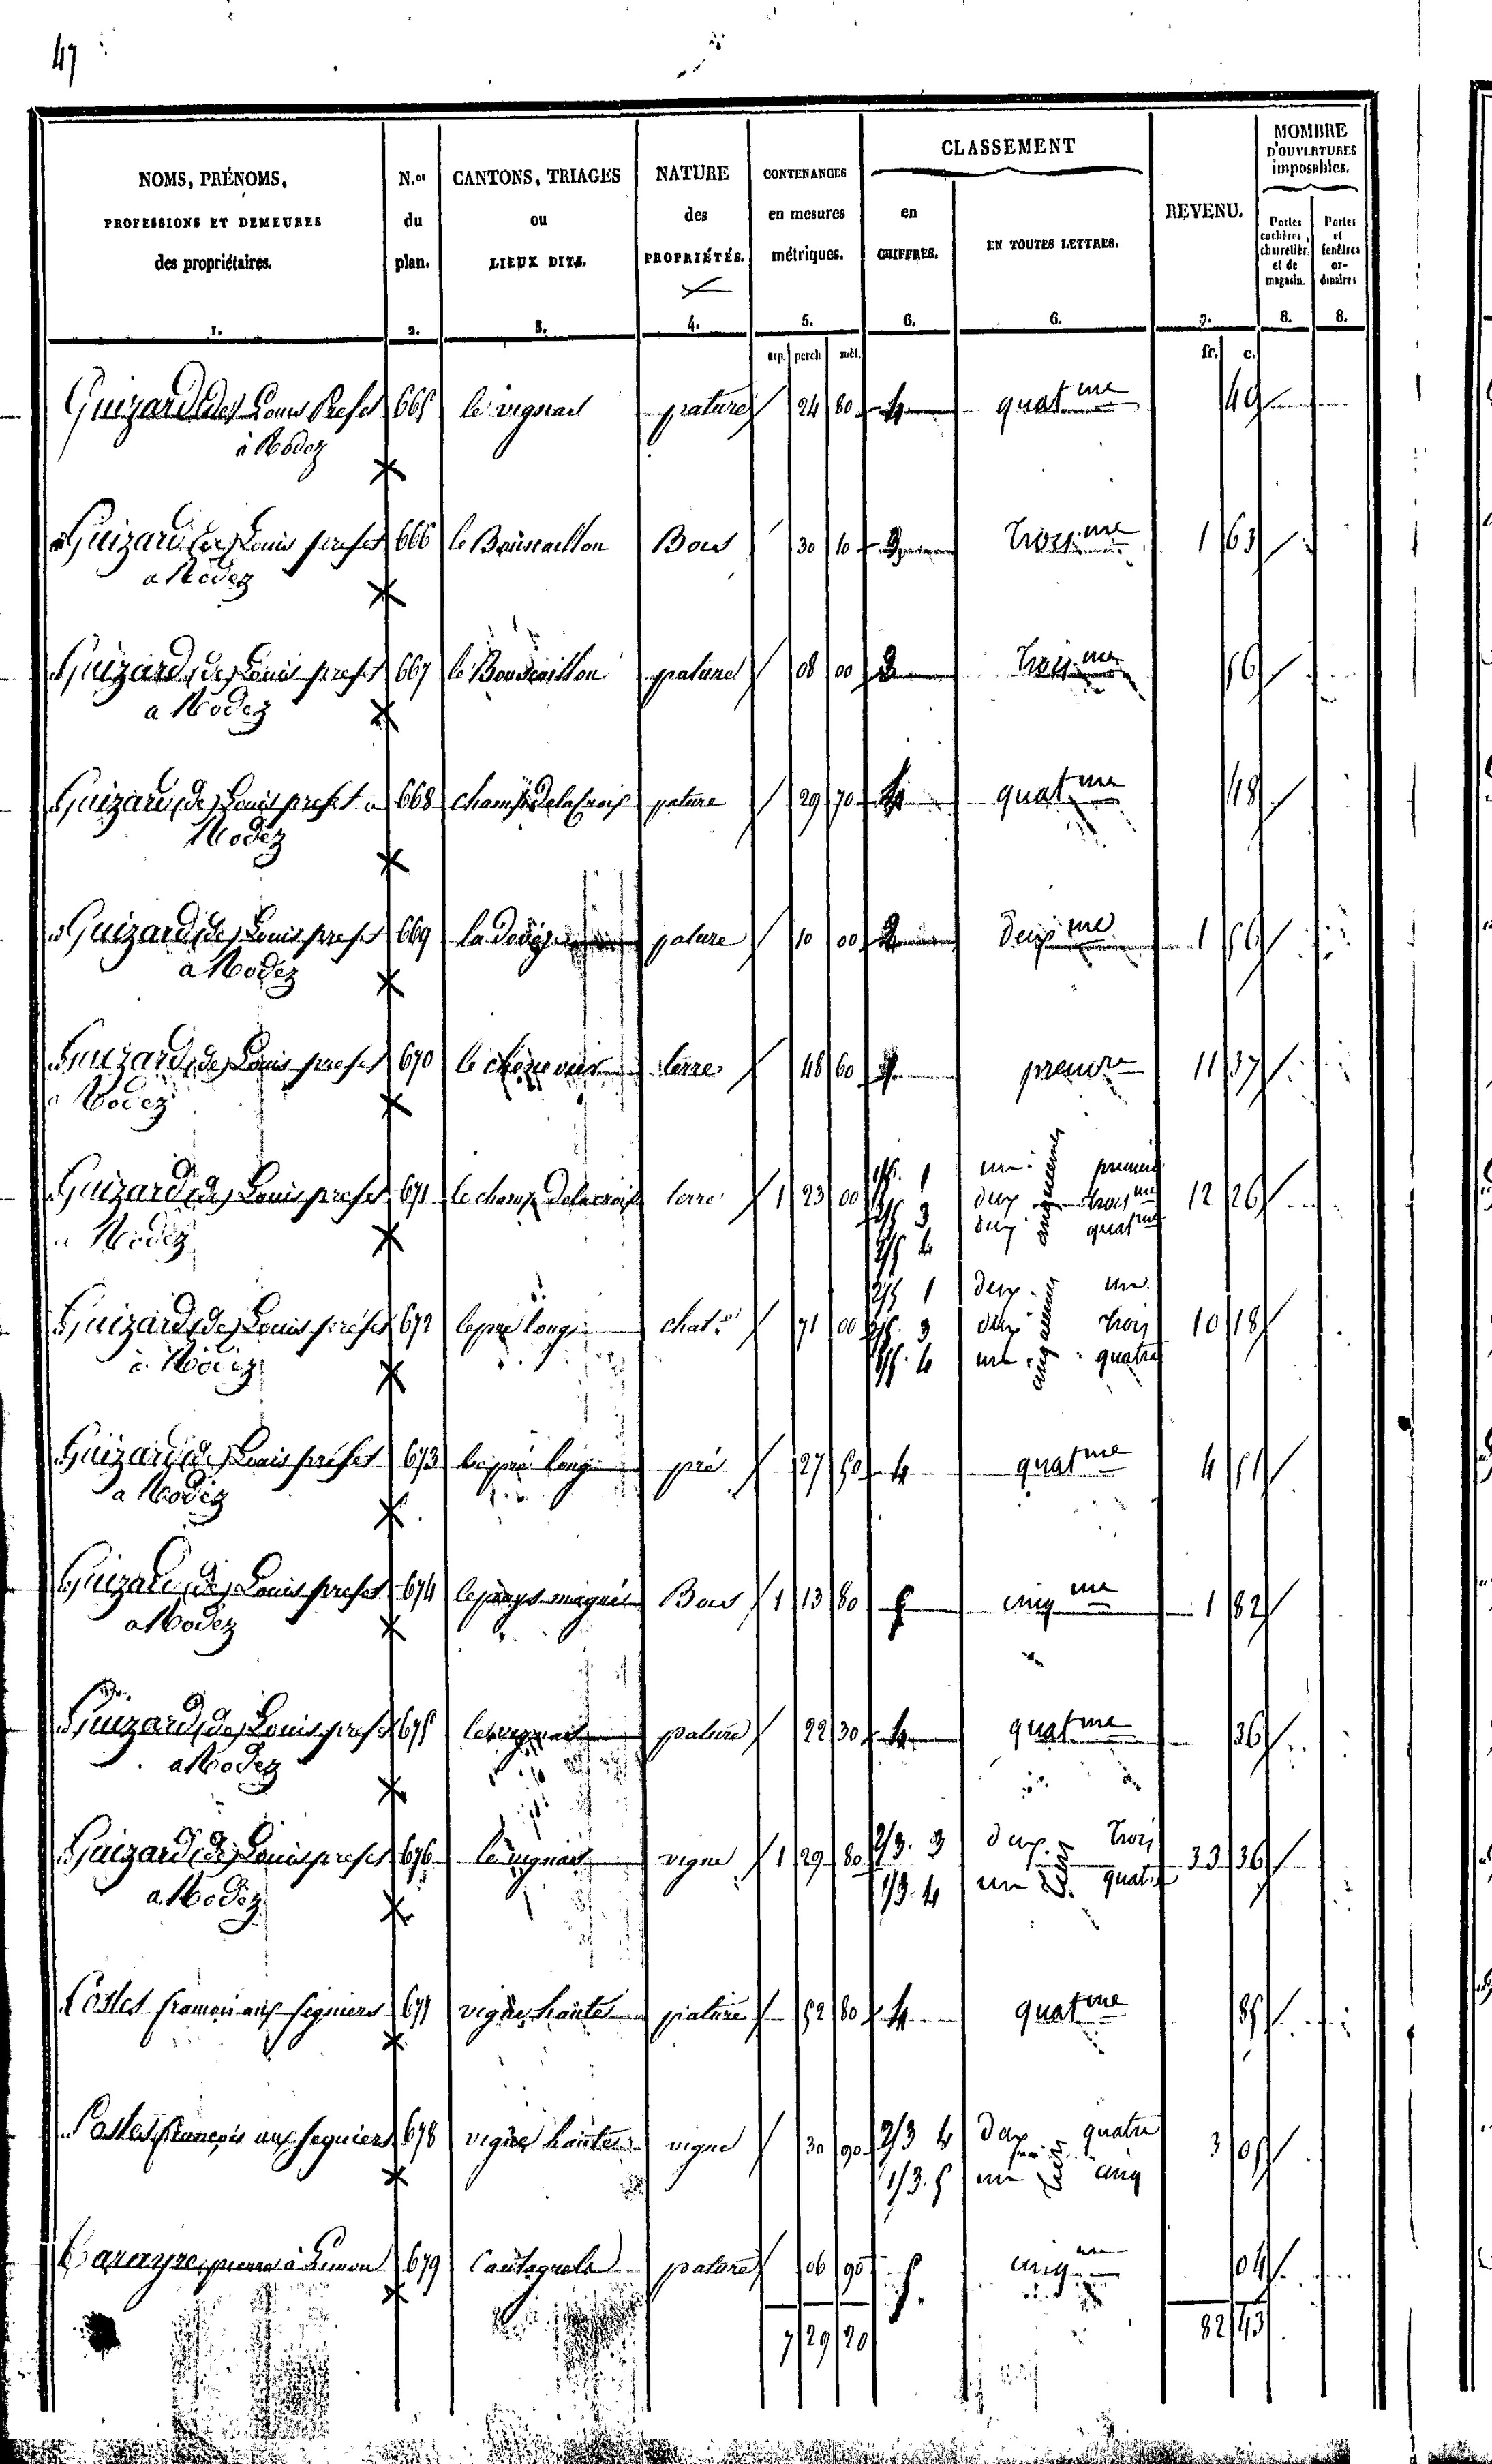 47
NOMS, PRÉNOMS,
PROFESSIONS ET DEMEURES
des propriétaires.
1.
N.os
du
plan.
2.
CANTONS, TRIAGES
ou
LIEUX DITS.
3.
NATURE
des
PROPRIÉTÉS.
4.
CONTENANCES
en mesures
métriques.
5.
CLASSEMENT
en
CHIFFRES.
6.
EN TOUTES LETTRES.
6.
REVENU.
7.
NOMBRE
D'OUVERTURES
imposables.
Portes
cochères,
charretièr.
et de
magasin.
8.
Portes
et
fenêtres
or-
dinaires
8.
arp. perch mèt. fr. c.
Guizard (de) Louis Prefet 665 le vignard pature 24 80 4 quatme 49
à Rodez
Guizard (de) Louis prefet 666 le Bouscaillon Bois 30 10 3 troisme 1 63
a Rodez
Guizard (de) Louis prefet 667 le Bouscaillon pature 08 00 3 troisme 56
a Rodez
Guizard (de) Louis prefet a 668 champ de la Croix pature 29 70 4 quatme 48
Rodez
Guizard (de) Louis prefet 669 la devèze pature 10 00 2 deuxme 1 56
a Rodez
Guizard (de) Louis prefet 670 le chenevier terre 48 60 1 premre 11 37
a Rodez
Guizard (de) Louis prefet 671 le champ de la croix terre 1 23 00 1/5. 1 un premier 12 26
a Rodez 2/5 3 deux cinquiemes troisme
2/5 4 deux quatme
Guizard (de) Louis prefet 672 le pré long chat.er 71 00 2/5 1 deux un 10 18
à Rodez 2/5. 3 deux cinquiemes trois
1/5. 4 un quatre
Guizard (de) Louis prefet 673 le pré long pré 27 50 4 quatme 4 51
a Rodez
Guizard (de) Louis prefet 674 le Bois 1 13 80 5 cinqme 1 82
a Rodez
Guizard (de) Louis prefet 675 le vignard pature 22 30 4 quatme 36
a Rodez
Guizard (de) Louis prefet 676 le vignard vigne 1 29 80 2/3. 3 deux trois 33 36
a Rodez 1/3. 4 un tiers quatre
Costes francois aux seguiers 677 vigne haute pature 52 80 4 quatme 85
Costes francois aux seguiers 678 vigne haute vigne 30 90 2/3 4 deux quatre 3 05
1/3. 5 un tiers cinq
pierre à 679 pature 06 90 5. cinqme 04
7 29 20 82 43